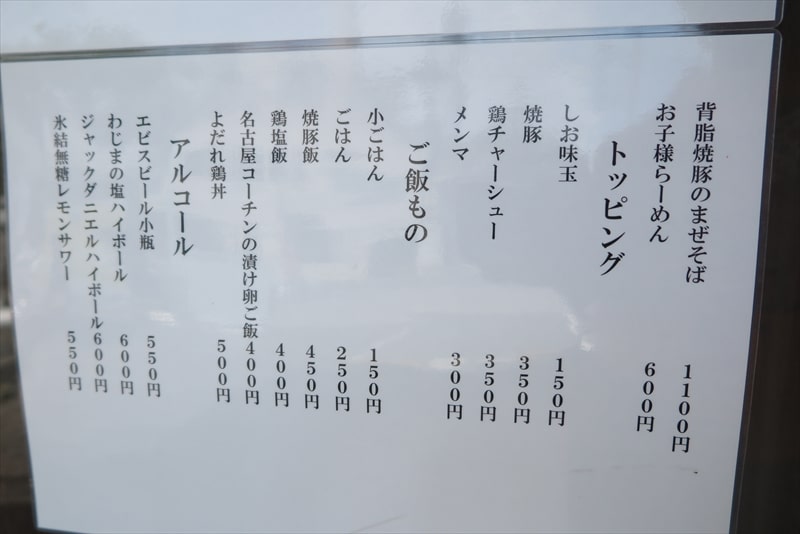 背脂焼豚のまぜそば 1100円
お子様らーめん 600円
トッピング
しお味玉 150円
焼豚 350円
鶏チャーシュー 350円
メンマ 300円
ご飯もの
小ごはん 150円
ごはん 250円
焼豚飯 450円
鶏塩飯 400円
名古屋コーチンの漬け卵ご飯 400円
よだれ鶏丼 500円
アルコール
エビスビール小瓶 550円
わじまの塩ハイボール 600円
ジャックダニエルハイボール 600円
氷結無糖レモンサワー 550円